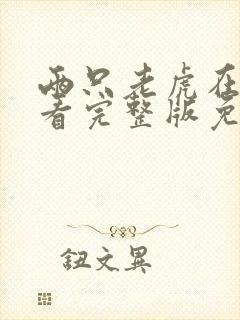 两只老虎在
看完整版免
钮文异